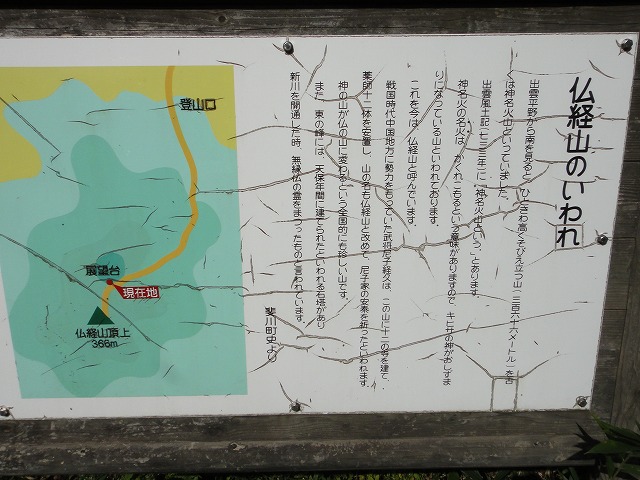 仏経山のいわれ
出雲平野から南を見ると、ひときわ高くそびえ立つ山(三百六十六メートル)を古
くは神名火山といっていました。
出雲風土記(七三三年)に「神名火山という。」とあります。
神名火の名火は、かくれこもるという意味がありますので、キヒサの神がおしずま
りになっている山といわれております。
これを今は、仏経山と呼んでいます。
戦国時代中国地方に勢力をもっていた武将尼子経久は、この山に十二の寺を建て、
薬師十二体を安置し、山の名も仏経山と改めて、尼子家の安泰を祈ったといわれます。
神の山が仏の山に変わるという全国的にも珍しい山です。
また、東の峰には、天保年間に建てられたといわれる石塔があり
新川を開通した時、無縁仏の霊をまつったものと言われています。
斐川町史より
登山口
展望台
現在地
仏経山頂上
366m